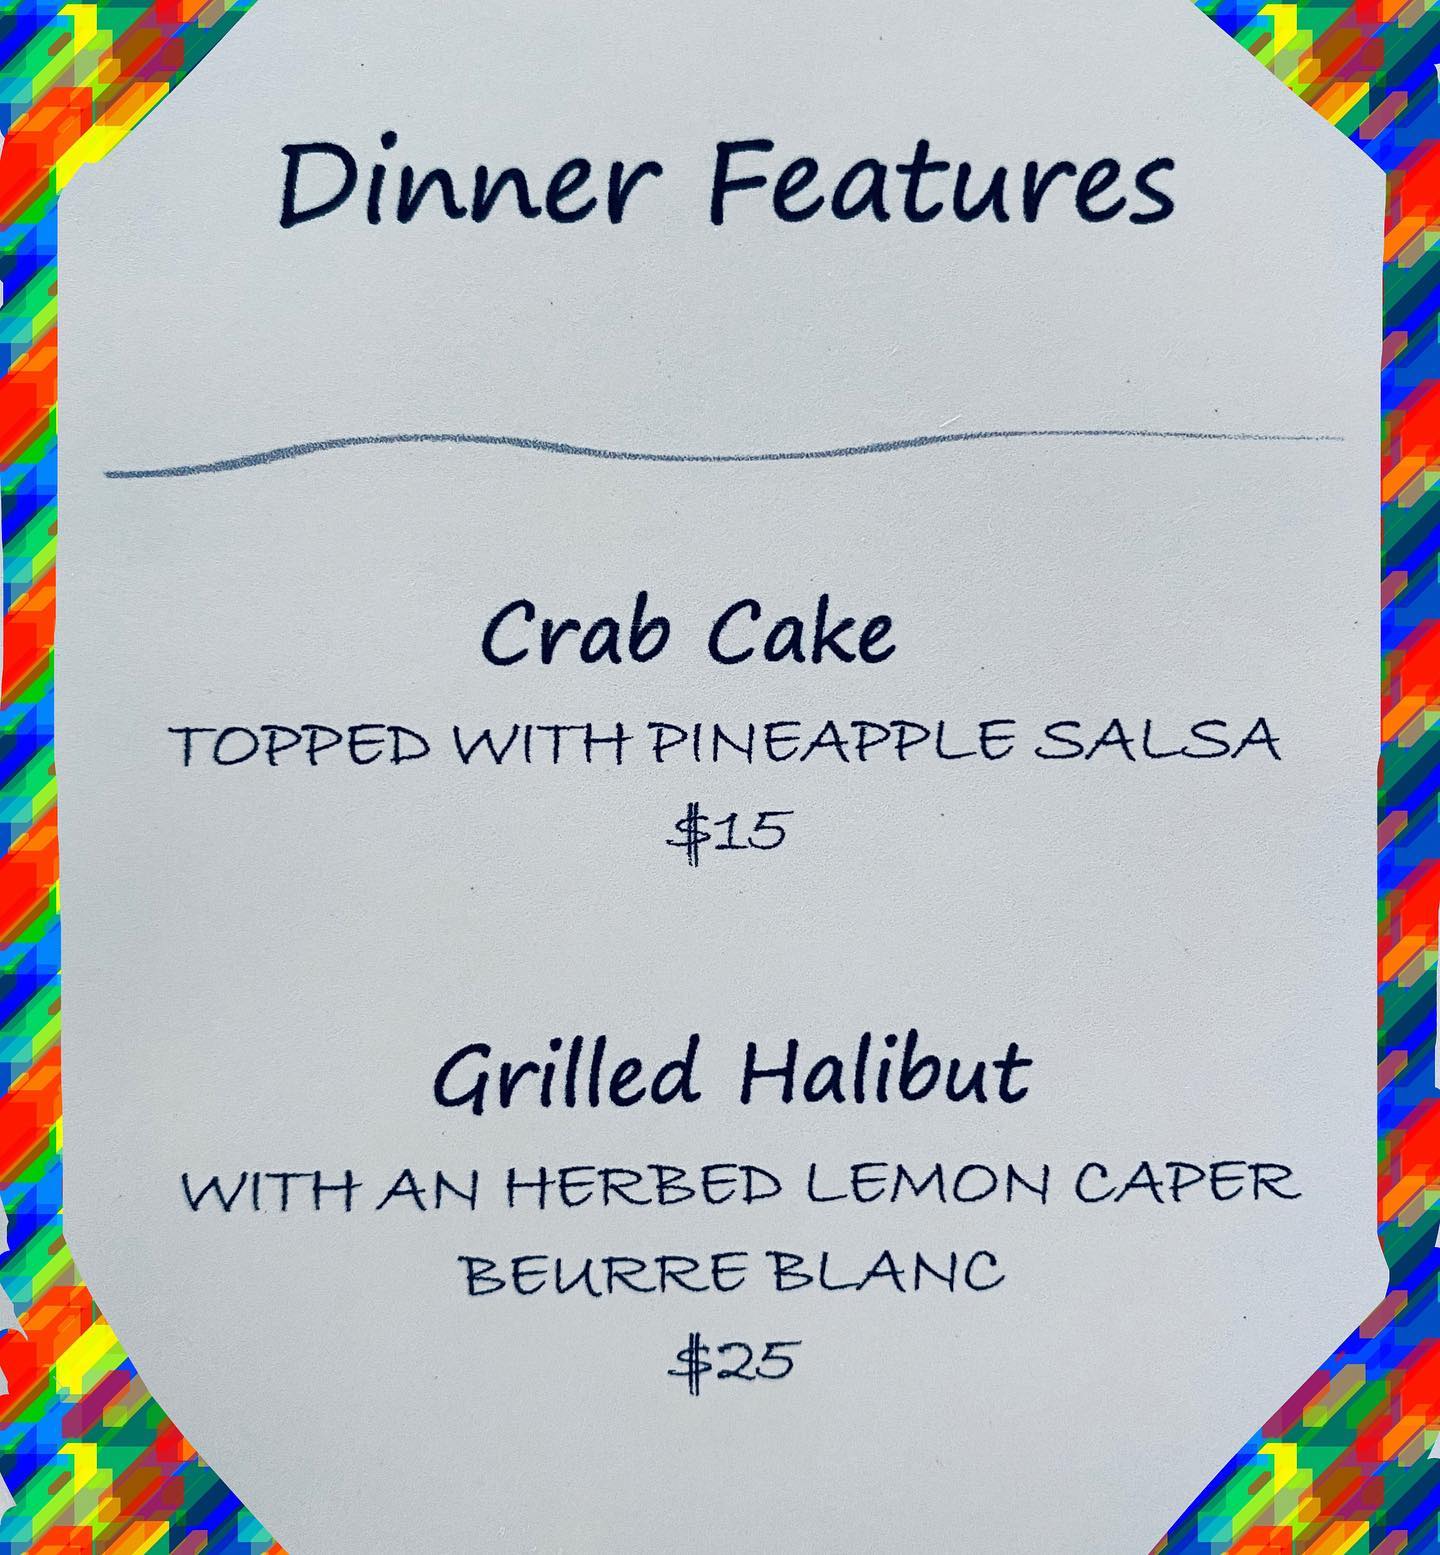 Dinner Features
Crab Cake
TOPPED WITH PINEAPPLE SALSA
$15
Grilled Halibut
WITH AN HERBED LEMON CAPER
BEURRE BLANC
$25